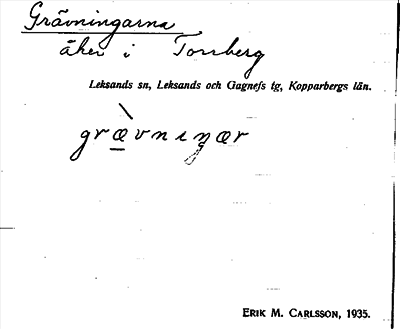 Grävningarna
åker i Torrberg
Leksands sn, Leksands och Gagnefs tg, Kopparbergs län.
grævniŋær
ERIK M. CARLSSON, 1935.